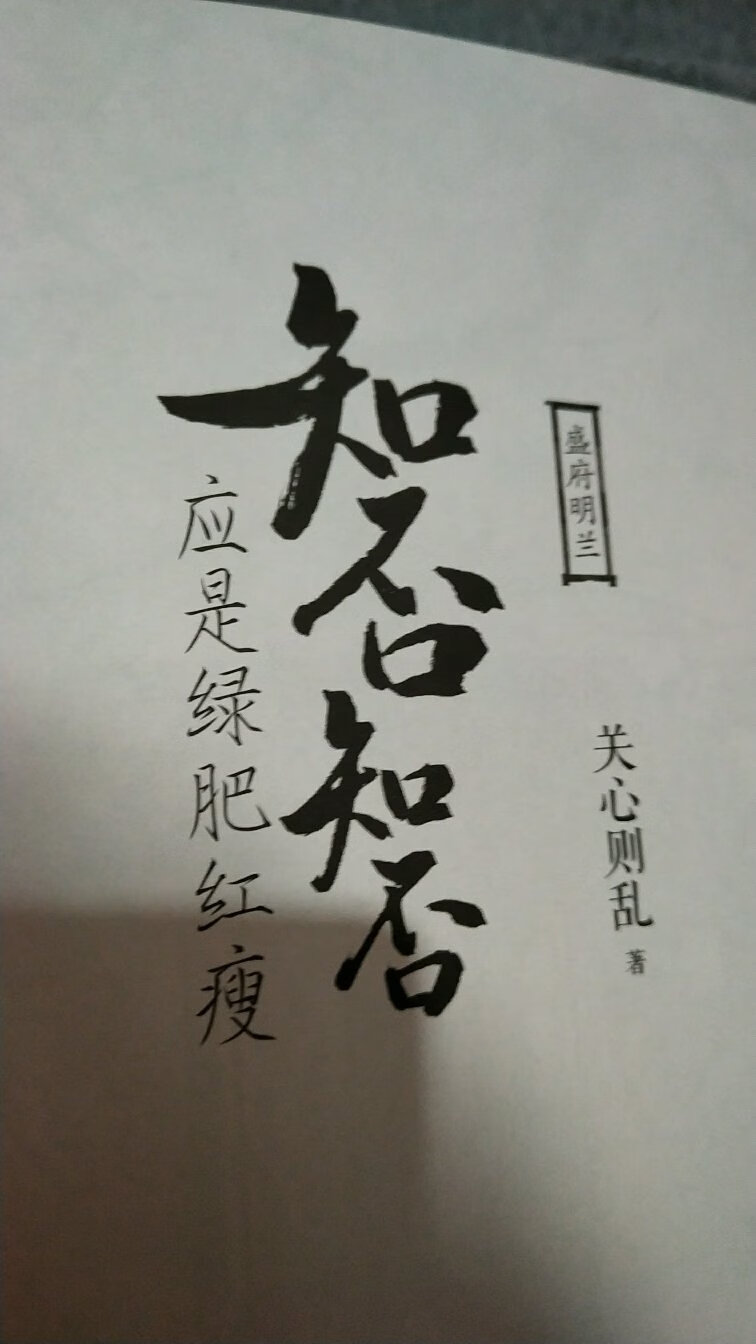 盛府明兰
关心则乱 著
知否知否
应是绿肥红瘦